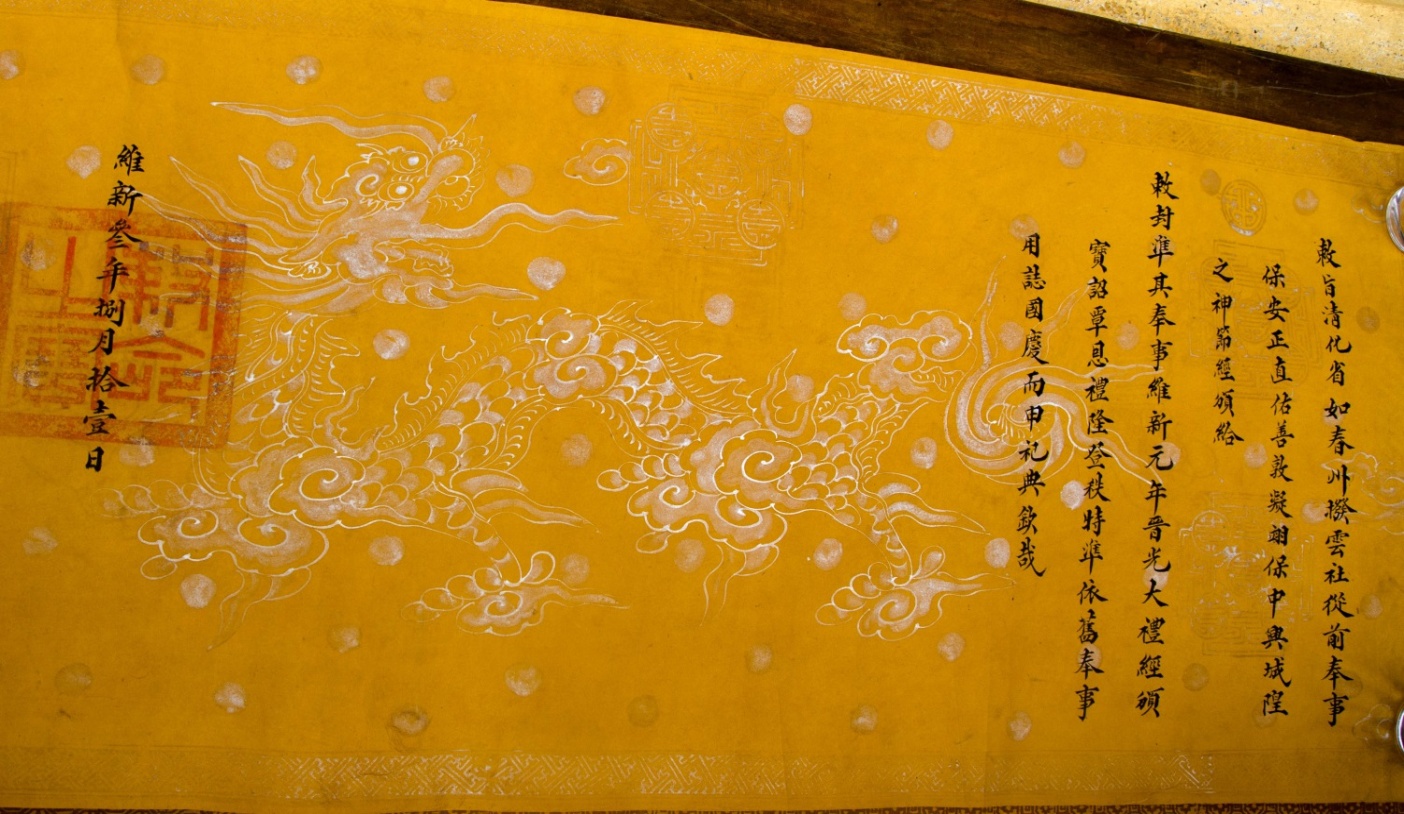 敕旨清化省如春州撥雲社從前奉事
保安正直佑善敦凝翊保中興城隍
之神節經頒給
敕封準其奉事維新元年晉光大禮經頒
寶詔覃恩禮隆登秩特準依舊奉事
用誌國慶而申祀典欽哉
維新叁年捌月拾壹日
敕命之寶